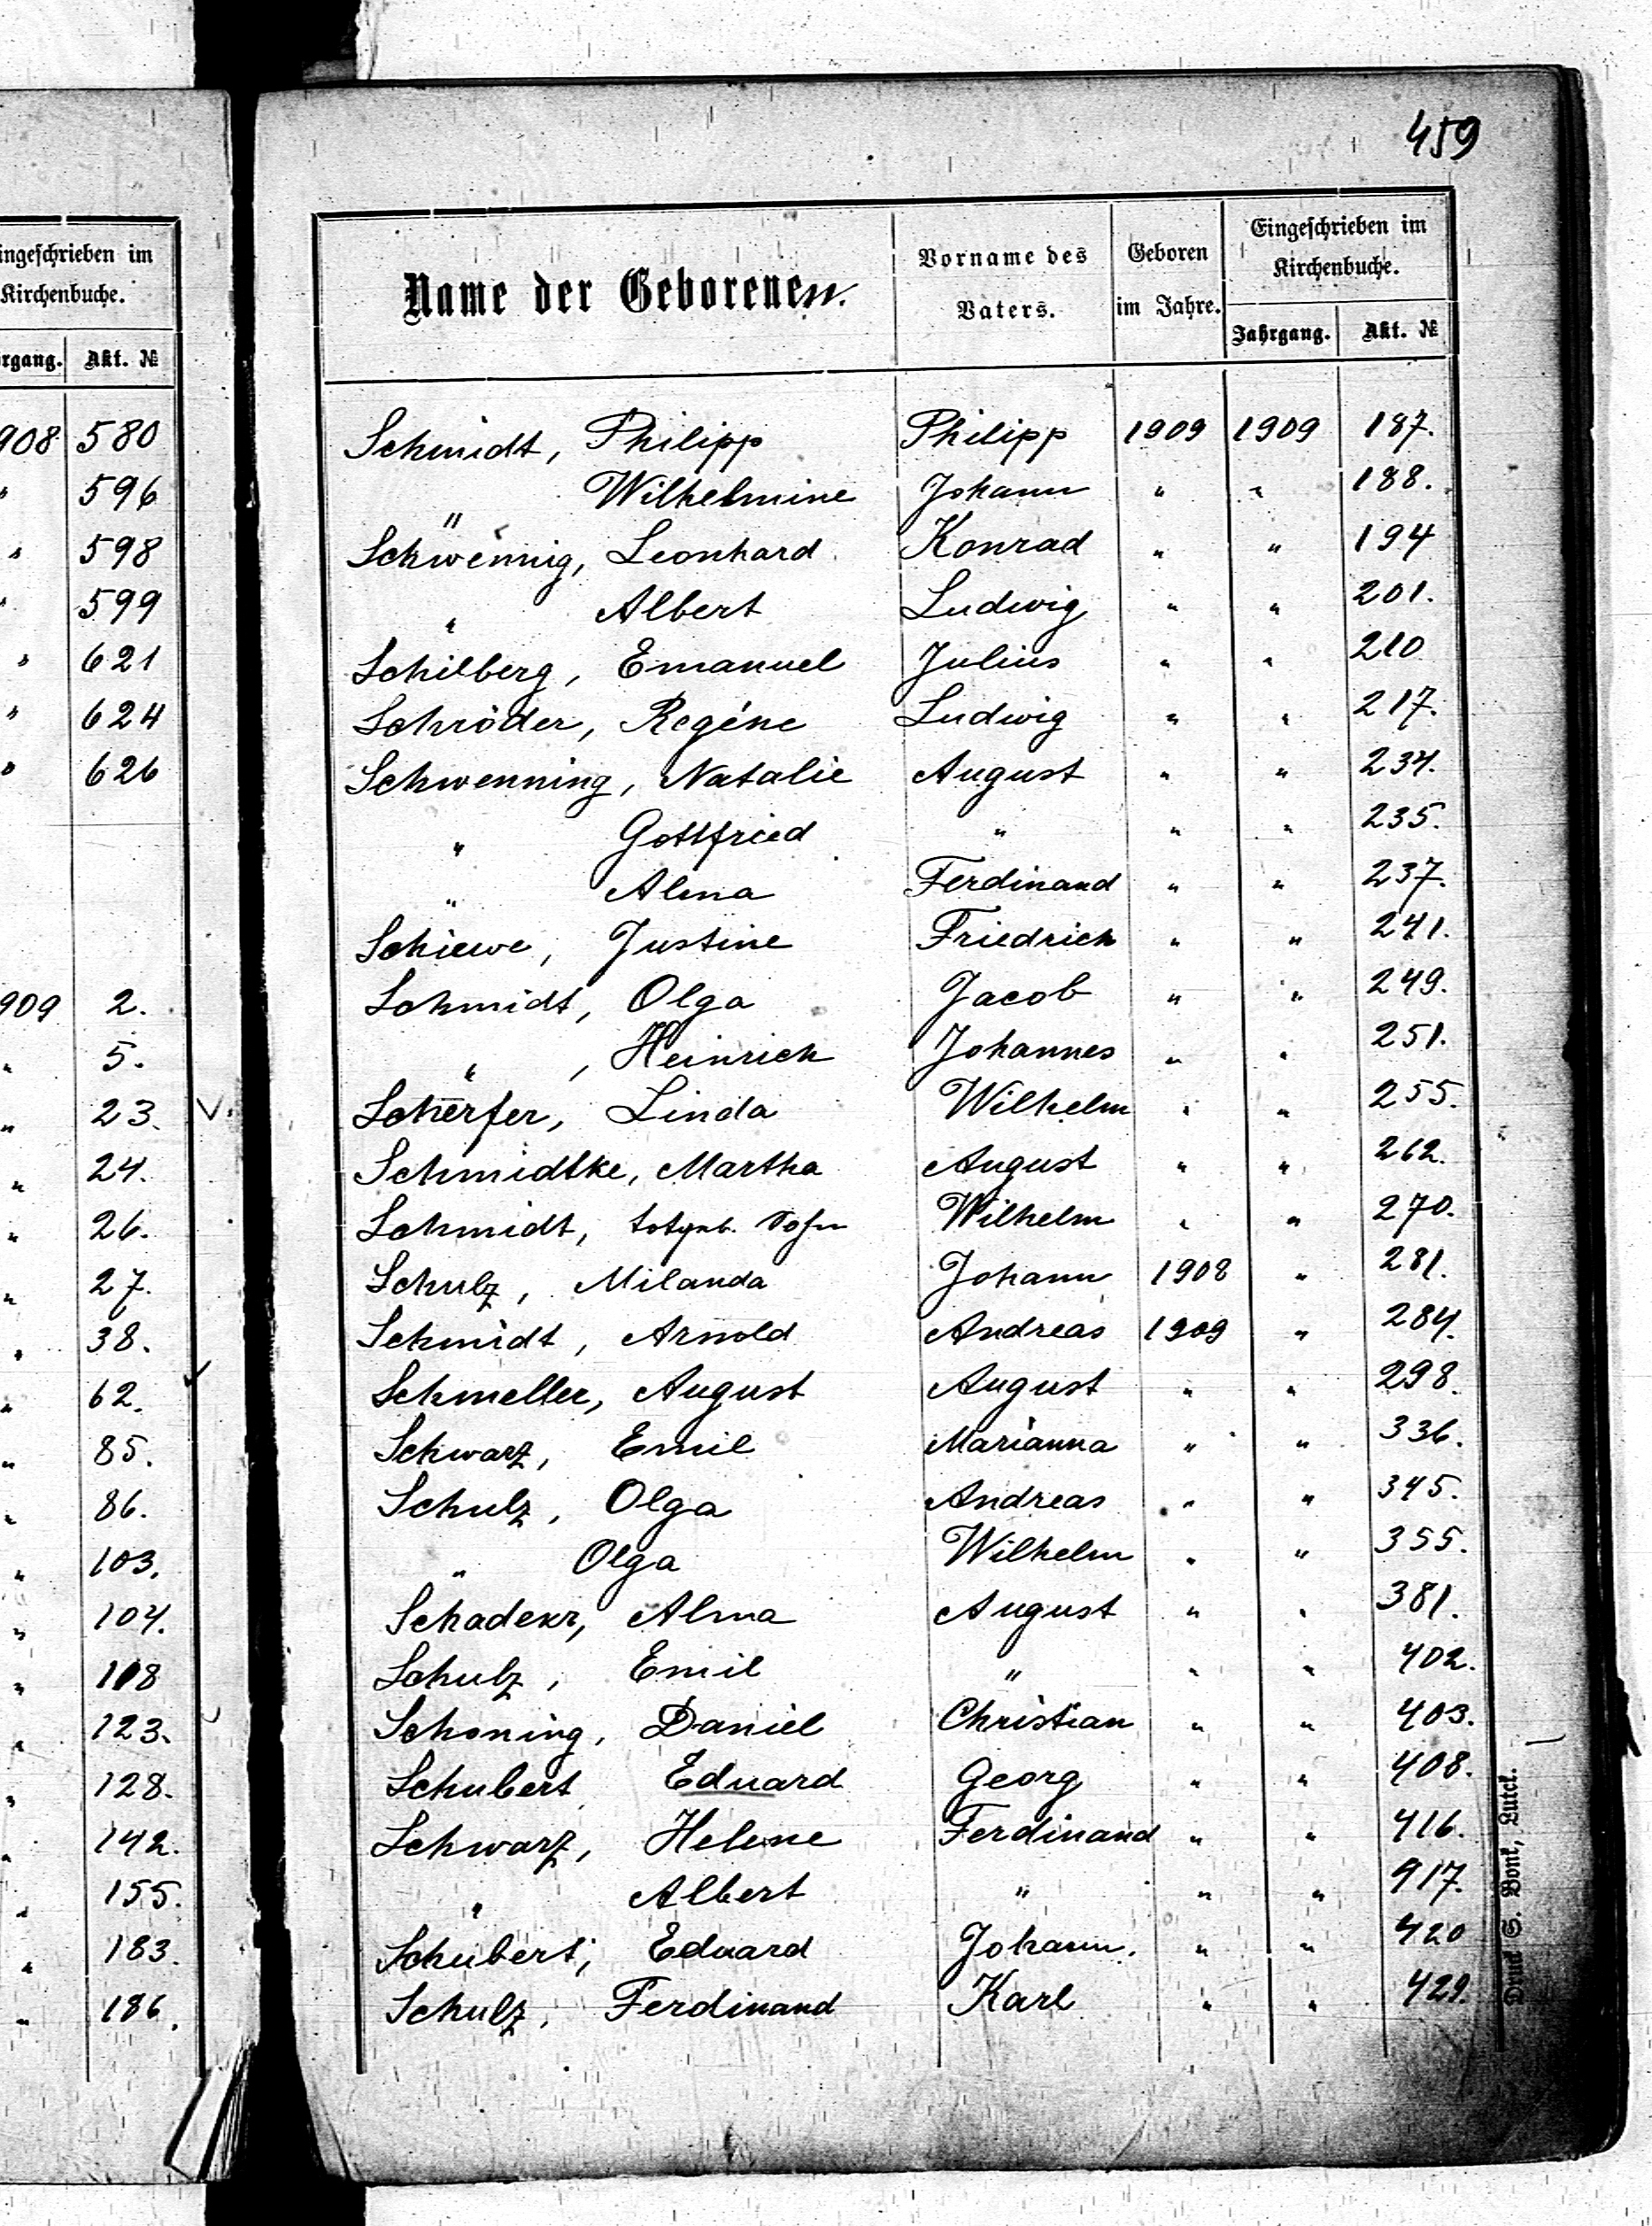 459
ingeschrieben im
Kirchenbuche.
rgang. Akt. №
908 580
" 596
" 598
" 599
" 621
" 624
" 626
909 2.
" 5.
" 23.
" 24.
" 26.
" 27.
" 38.
" 62.
" 85.
" 86.
" 103.
" 104.
" 118
" 123.
" 128.
" 142.
" 155.
" 183.
" 186.
Name der Geborenen. Vorname des Vaters. Geboren im Jahre. Eingeschrieben im Kirchenbuche.
Jahrgang. Akt. №
Schmidt, Philipp Philipp 1909 1909 187.
" Wilhelmine Johann " " 188.
Schwennig, Leonhard Konrad " " 194
" Albert Ludwig " " 201.
Schilberg, Emanuel Julius " " 210
Schröder, Regine Ludwig " " 217.
Schwenning, Natalie August " " 234.
" Gottfried " " " 235.
" Alma Ferdinand " " 237.
Schiewe, Justine Friedrich " " 241.
Schmidt, Olga Jacob " " 249.
" , Heinrich Johannes " " 251.
Scherfer, Linda Wilhelm " " 255.
Schmidtke, Martha August " " 262.
Schmidt, totgeb. Sohn Wilhelm " " 270.
Schulz, Milanda Johann 1908 " 281.
Schmidt, Arnold Andreas 1909 " 284.
Schmeller, August August " " 298.
Schwarz, Emil Marianna " " 336.
Schulz, Olga Andreas " " 345.
" Olga Wilhelm " " 355.
Alma August " " 381.
Schulz, Emil " " " 402.
Schoning, Daniel Christian " " 403.
Schubert Eduard Georg " " 408.
Schwarz, Helene Ferdinand " " 416.
" Albert " " " 917.
Schubert, Eduard Johann. " " 420
Schulz, Ferdinand Karl " " 429.
Druck S. Bonk, Luck.